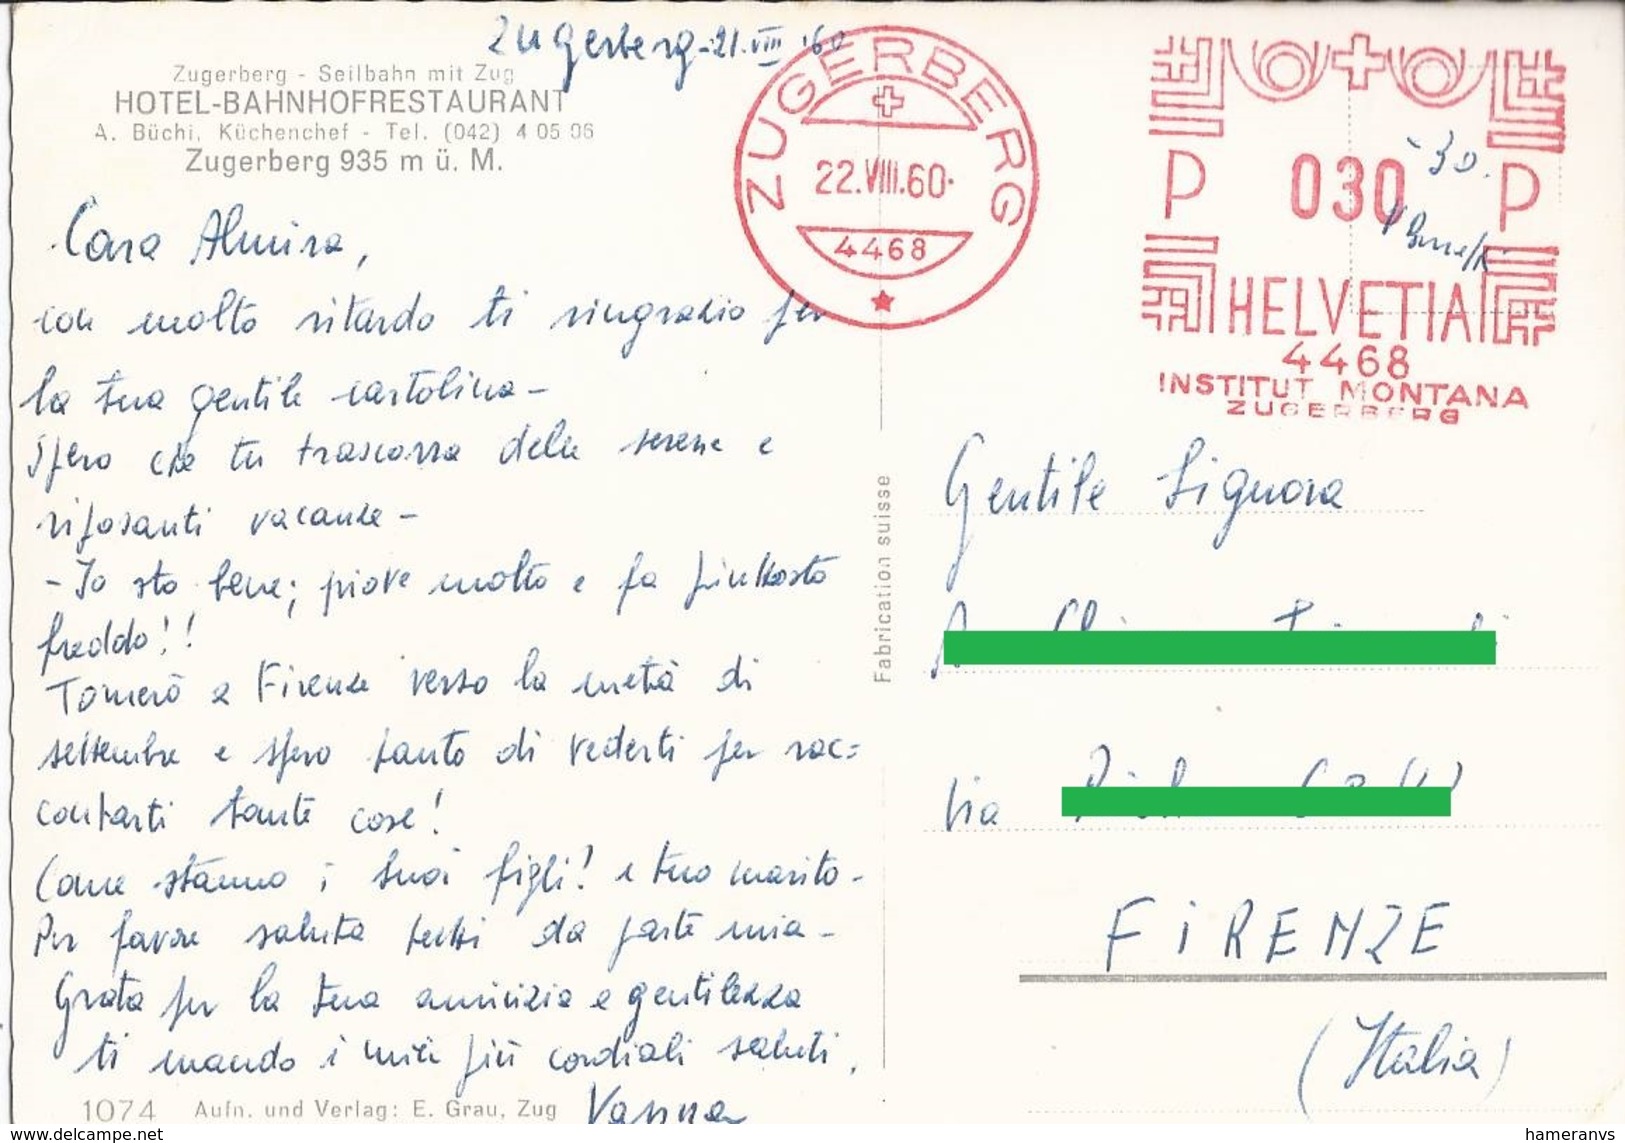 Zugerberg - 21.VIII.60
Zugerberg - Seilbahn mit Zug
HOTEL-BAHNHOFRESTAURANT
A. Büchi, Küchenchef - Tel. (042) 4 05 06
Zugerberg 935 m ü. M.
Cara Almira,
con molto ritardo ti ringrazio per
la tua gentile cartolina -
Spero che tu trascorra delle serene e
riposanti vacanze -
- Io sto bene; piove molto e fa piuttosto
freddo!!
Tornerò a Firenze verso la metà di
settembre e spero tanto di vederti per rac=
contarti tante cose!
Come stanno i tuoi figli? e tuo marito -
Per favore saluta tutti da parte mia -
Grata per la tua amicizia e gentilezza
ti mando i miei più cordiali saluti.
Vanna
1074 Aufn. und Verlag: E. Grau, Zug
Fabrication suisse
ZUGERBERG
22.VIII.60.
4468
P 030 P
- 30.
HELVETIA
4468
INSTITUT MONTANA
ZUGERBERG
Gentile Signora
Via
FIRENZE
(Italia)
www.delcampe.net
hameranvs